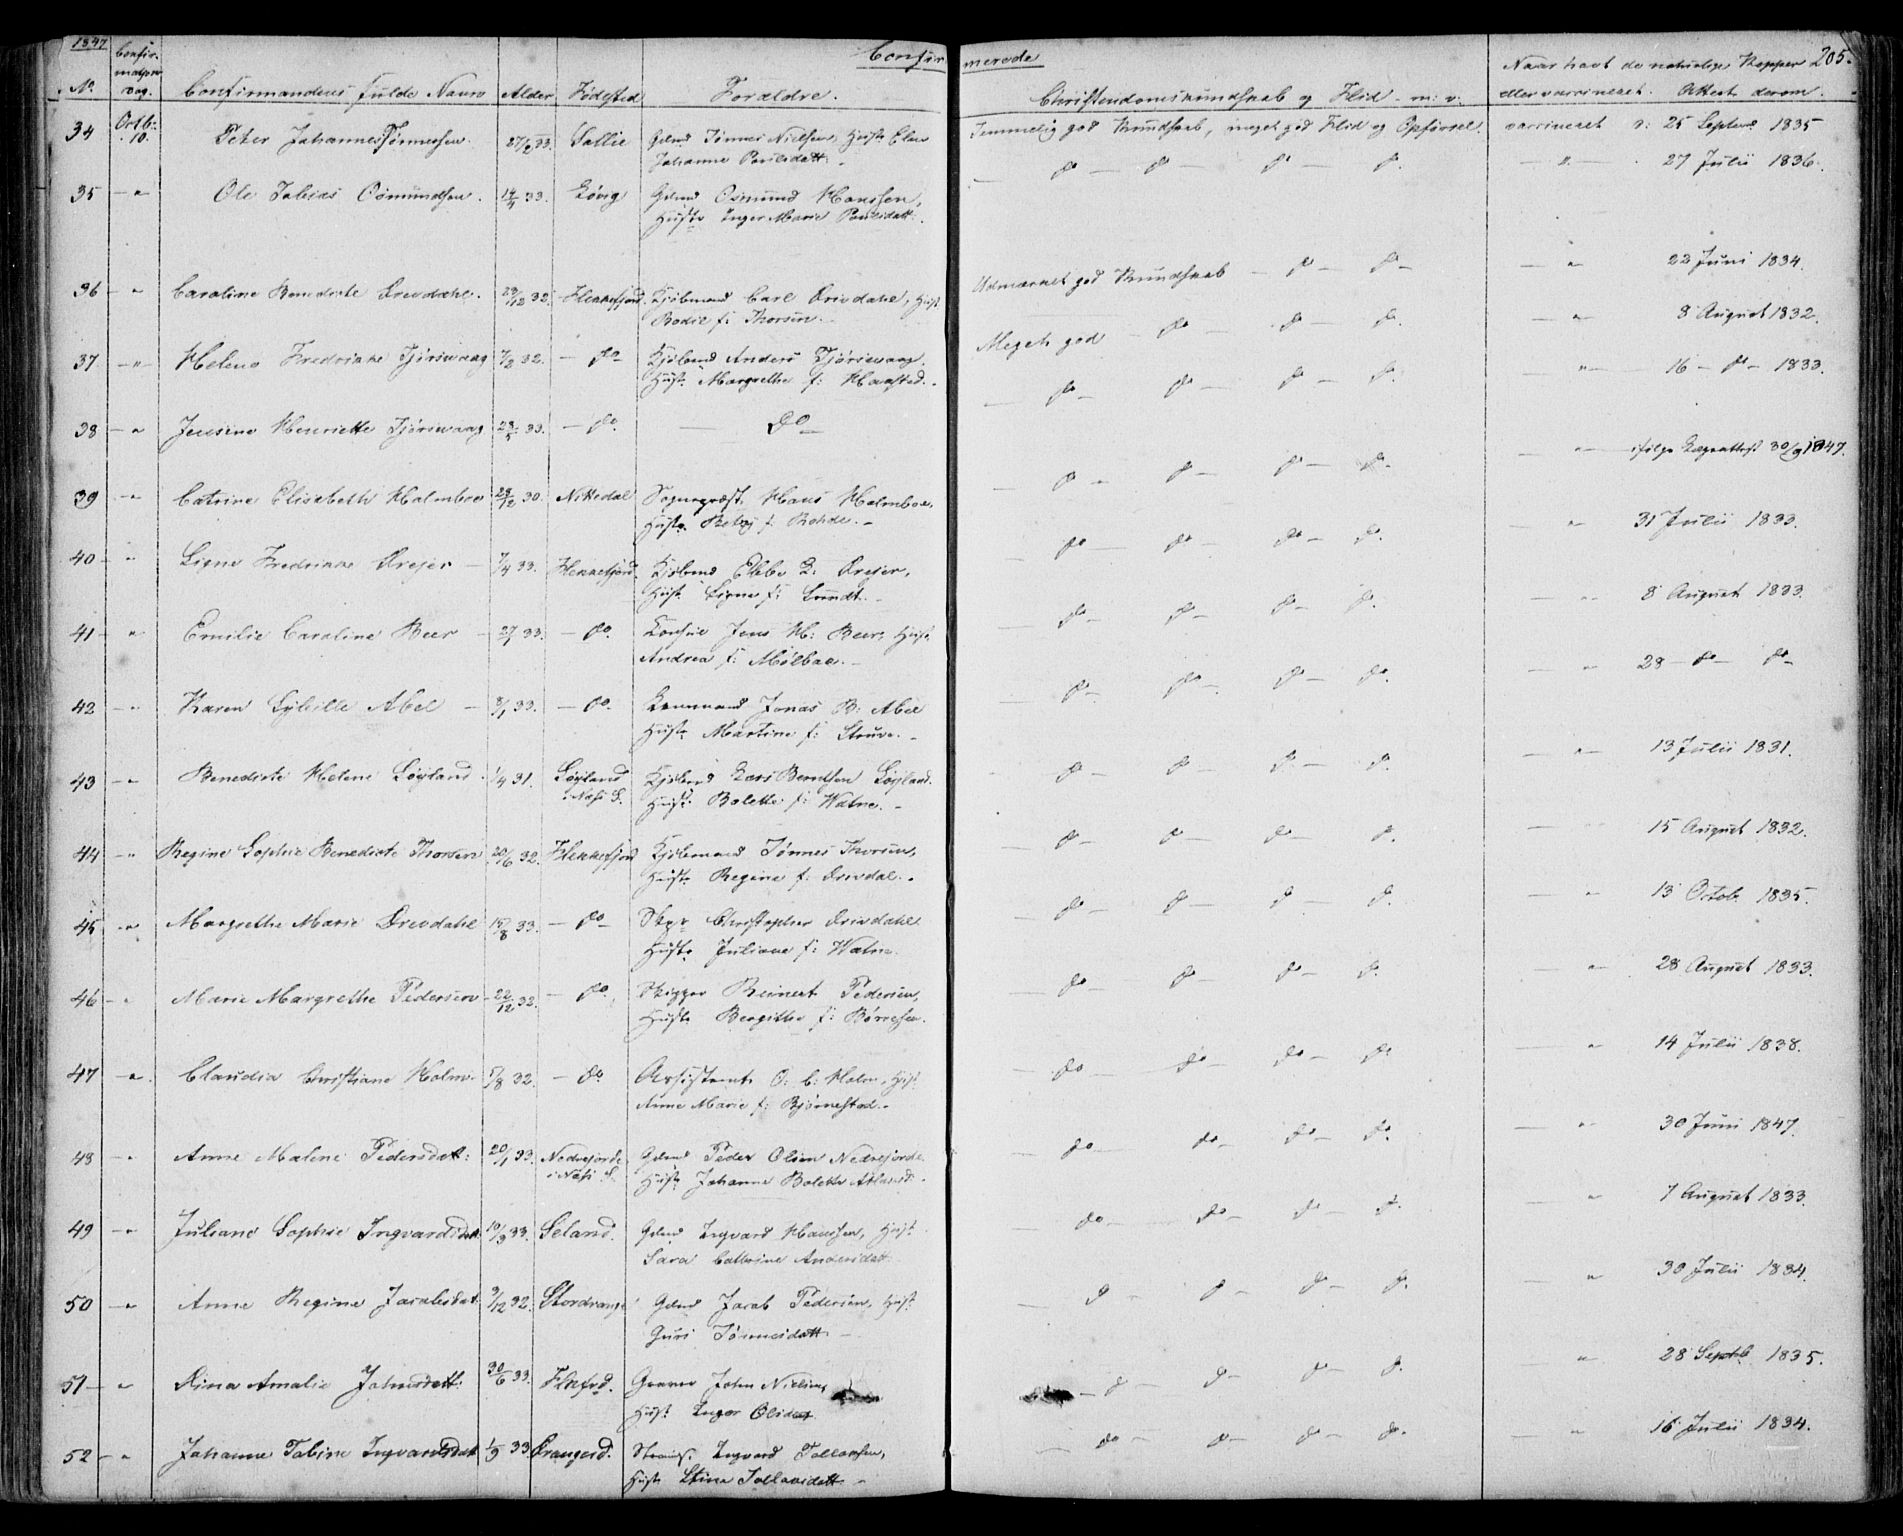 1847
Confirmerede
205.
No
Confirmations dag.
Confirmandens fulde Navn
Alder
Fødested
Forældre.
Christendomskundskab og Flid m: v:
Naar havt de naturlige Kopper eller vaccineret. Attest derom.
34 Octb: 10. Peter Johannes Tønnessen. 27/2 33. Sallie Gdmd Tønnes Nielsen, Hust: Elen
Johanne Poulsdatt. -
Temmelig god Kundskab, meget god Flid og Opførsel. vaccineret d: 25 Septem. 1835
35 - " Ole Tobias Osmundsen. 14/4 33. Løvig Gdmd Osmund Hanssen,
Hust: Inger Marie Poulsdatt.
do - do - do - do. - " - 27 Julii 1836.
36 - " Caroline Benedicte Drevdahl. 23/12 32. Flekkefjord. Kjøbmand Carl Drevdahl, Hust
Bodil f: Thorsen.
Udmærket god Kundskab - do - do - - " 22 Juni 1834.
37 - " - Helene Fredrikke Tjørswaag 7/2 32. - do Kjøbmd Anders Tjørswaag.
Hust: Margrethe f: Haasted.
Meget god - do - do - do. - " 8 August 1832.
38 - " Jensine Henriette Tjørswaag 23/5 33. - do. - Do
do - do - do - do. - " - 16 - do - 1833.
39 - " Catrine Elisabeth Holmboe 23/12 30. Nittedal Sognepræst Hans Holmboe,
Hust: Betzy f: Rohde. -
do - do - do - do. - " - ifølge Lægeattest 30/9 1847.
40 - " Signe Fredrikke Dreyer - 7/4 33. Flekkefjord. Kjøbmd Ebbe L: Dreyer,
Hust: Signe f: Lundt. -
do - do - do - do. - " 31 Julii 1833.
41 - " Emilie Caroline Beer - 27/ 33. - do. Konsul Jens H: Beer, Hust
Andrea f: Mølbae. -
do - do - do - do. - " 8 August 1833.
42 - " Karen Sybille Abel - 8/1 33. - do. Jonas B: Abel
Hust: Martine f: Struve. -
do - do - do - do. - " 28 - do - do -
43 - " Benedicte Helene Løyland. 1/4 31. Løyland
i Næs S. Kjøbmd Lars Berntsen Løyland.
Hust: Bolette f: Watne. -
do - do - do - do. - " 13 Julii 1831.
44 - " Regine Sophie Benedicte Thorsen 20/6 32. Flekkefjord Kjøbmand Tønnes Thorsen,
Hust: Regine f: Drevdal. -
do - do - do - do. 15 August 1832.
45 - " Margrethe Marie Drevdahl 15/8 33. - do - Skpr Christopher Drevdahl
Hust: Juliane f: Watne.
do - do - do - do. - " 13 Octob. 1835.
46 - " Marie Margrethe Pedersen 22/12 32. - do. Skipper Reinert Pedersen,
Hust: Bergitha f: Børresen.
do - do - do - do. - " 28 August 1833.
47 - " Claudia Christiane Holm. 7/8 32. - do Assistent O: C: Holm, Hust
Anne Marie f: Bjørnestad. -
do - do - do - do - " 14 Julii 1838.
48 - " Anne Malene Pedersdatt: 20/1 33. Nedrefjorde
i Næs S. Gdmd Peder Olsen Nedrefjorde
Hust: Johanne Bolette
do - do - do - do. - " 30 Juni 1847.
49 - " Juliane Sophie Ingvardsdatt 10/3 33. Seland. Gdmd Ingvard Hanssen, Hust
Sara Cathrine Andersdatt.
do - do - do - do. " 7 August 1833.
50 - " Anne Regine Jacobsdat. 3/12 32. Stordrange Gdmd Jacob Pedersen, Hust
Guri Tønnesdatt -
do - do - do - do. - " 30 Julii 1834.
51 - " Rina Amalie Johnsdatt. 30/6 33. Flkfjrd. Graver John Nielsen,
Hust Inger Olsdatt
- do - do - do - do. " 28 Septb 1835.
52 - " Johanne Tobine Ingvardsdat 1/9 33. Drangeid. Ingvard Tollaksen,
Hust Stine Tollaksdatt -
do - do - do - do. - " 16 Julii 1834.